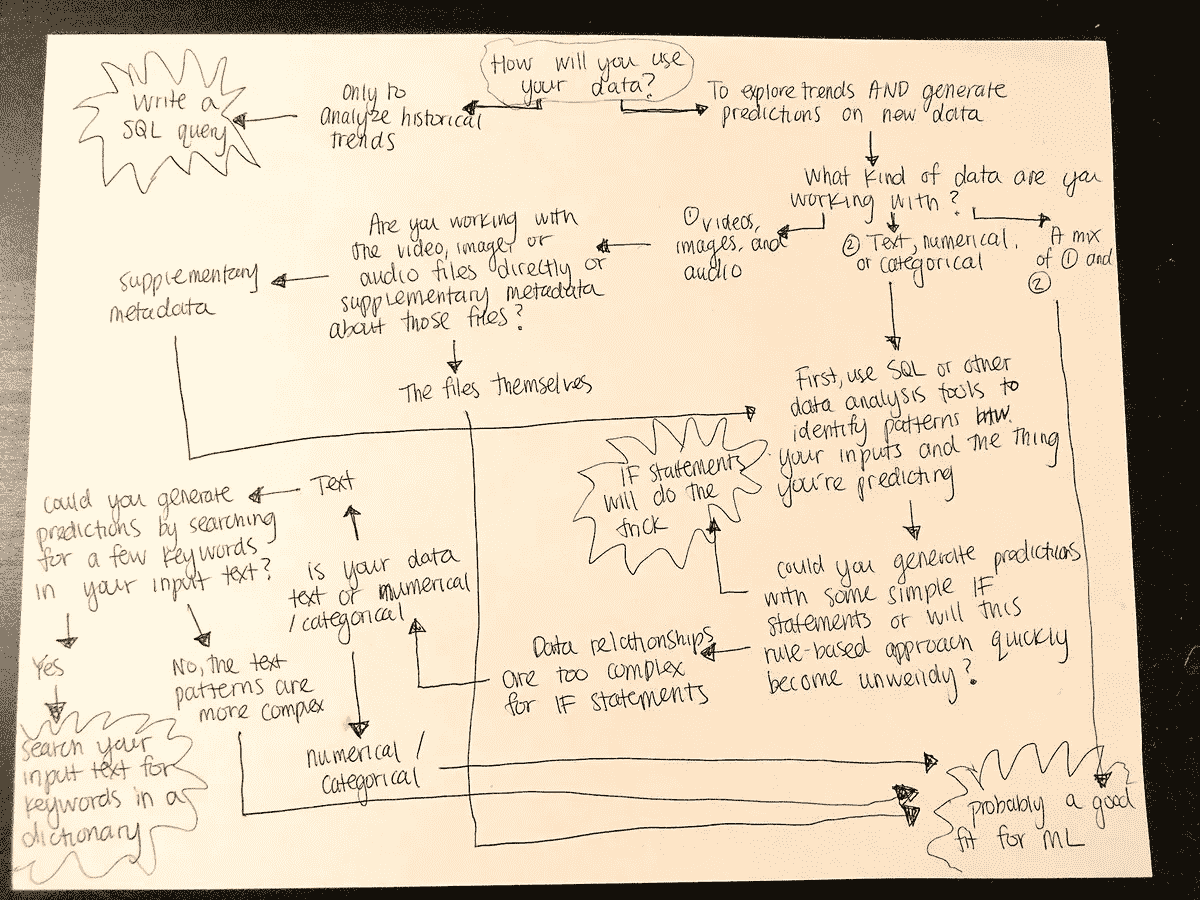 How will you use
your data?
only to
analyze historical
trends
Write a
SQL query
To explore trends AND generate
predictions on new data
What kind of data are you
working with?
① videos,
images, and
audio
② Text, numerical,
or categorical
A mix
of ① and
②
Are you working with
the video, image, or
audio files directly or
supplementary metadata
about those files?
supplementary
metadata
The files themselves
First, use SQL or other
data analysis tools to
identify patterns btw.
your inputs and the thing
you're predicting
IF statements
will do the
trick
could you generate predictions
with some simple IF
statements or will this
rule-based approach quickly
become unwieldy?
Data relationships
are too complex
for IF statements
is your data
text or numerical
/categorical
Text
could you generate
predictions by searching
for a few keywords
in your input text?
Yes
No, the text
patterns are
more complex
search your
input text for
keywords in a
dictionary
numerical /
categorical
probably a good
fit for ML